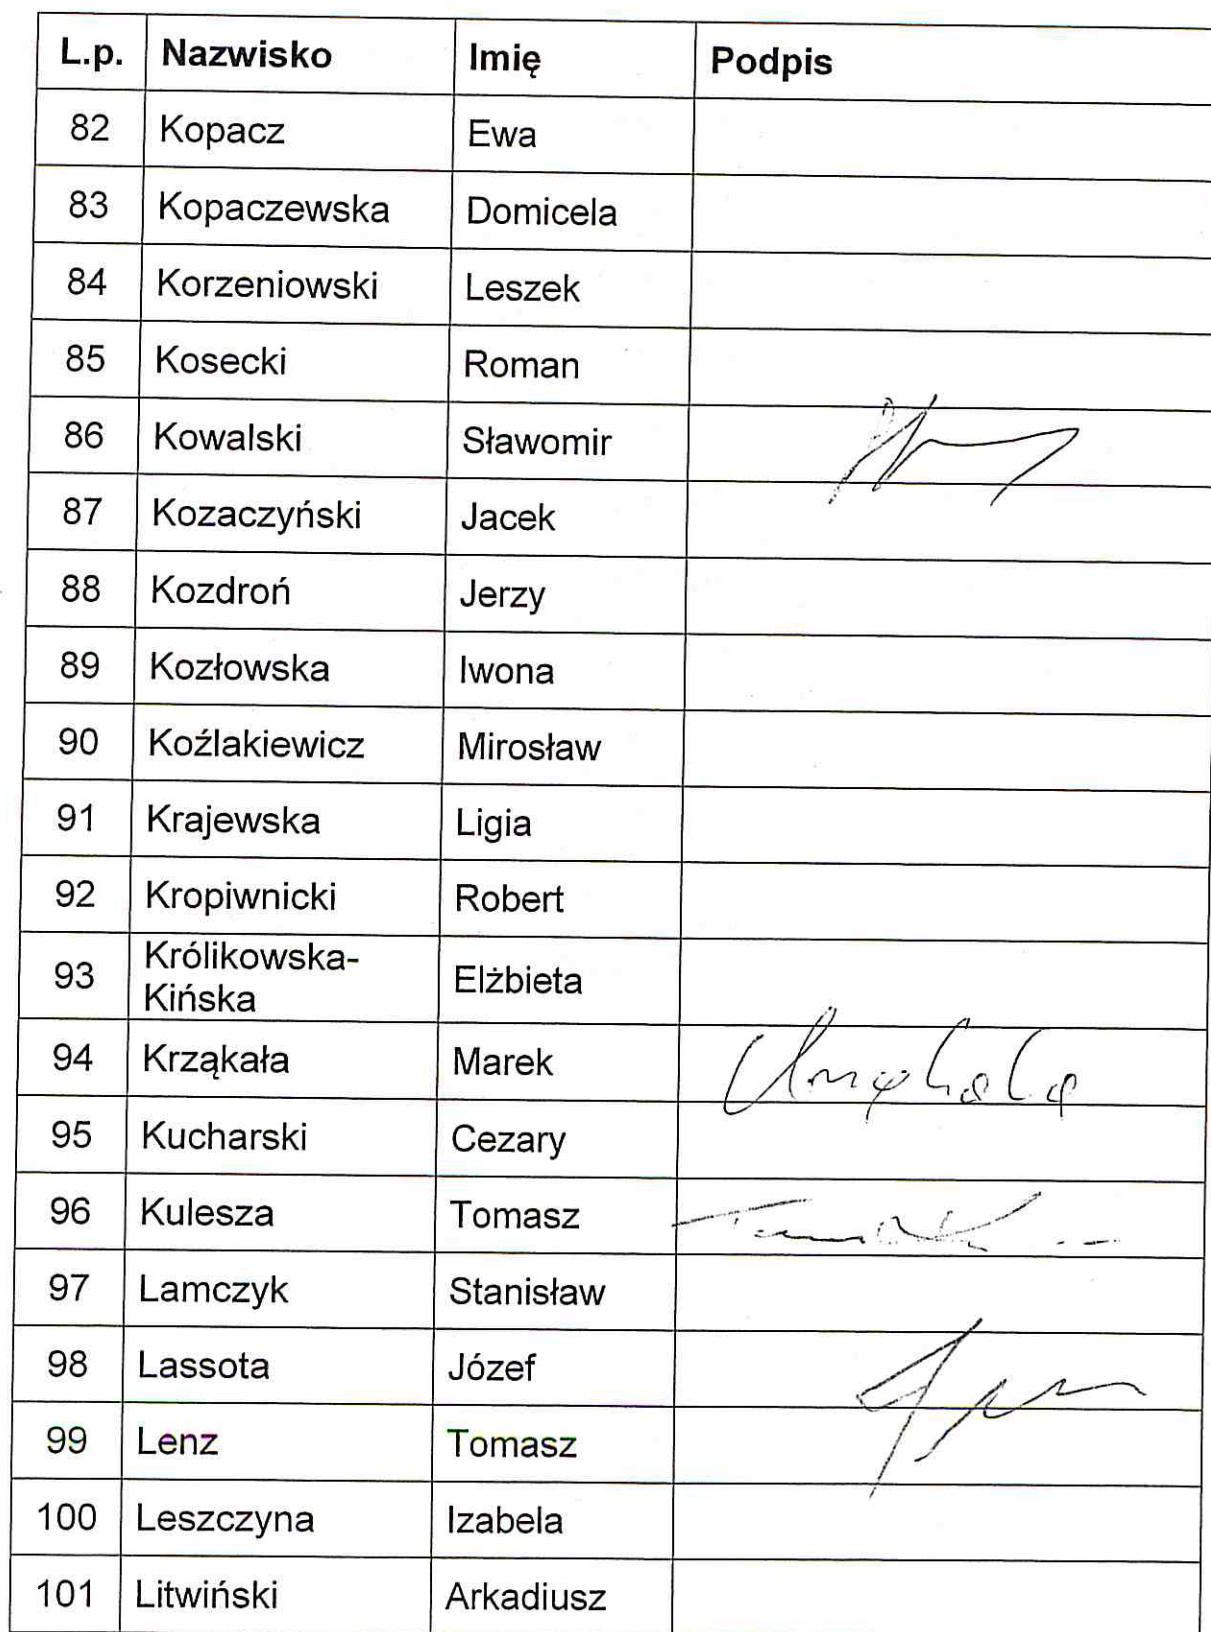 L.p. Nazwisko Imię Podpis
82 Kopacz Ewa
83 Kopaczewska Domicela
84 Korzeniowski Leszek
85 Kosecki Roman
86 Kowalski Sławomir
87 Kozaczyński Jacek
88 Kozdroń Jerzy
89 Kozłowska Iwona
90 Koźlakiewicz Mirosław
91 Krajewska Ligia
92 Kropiwnicki Robert
93 Królikowska-
Kińska Elżbieta
94 Krząkała Marek Krząkała
95 Kucharski Cezary
96 Kulesza Tomasz
97 Lamczyk Stanisław
98 Lassota Józef
99 Lenz Tomasz
100 Leszczyna Izabela
101 Litwiński Arkadiusz